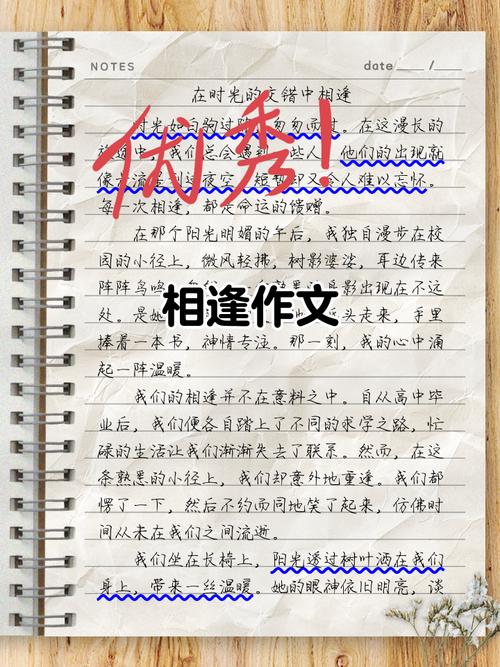 NOTES
date /
在时光的交错中相逢
时光如白驹过隙,匆匆而过。在这漫长的
旅途中,我们总会遇到一些人,他们的出现就
像流星划过夜空,短暂却又令人难以忘怀。
每一次相逢,都是命运的馈赠。
优秀!
在那个阳光明媚的午后,我独自漫步在校
园的小径上,微风轻拂,树影婆娑,耳边传来
阵阵鸟鸣 影出现在不远
处。是她 头走来,手里
相逢作文
捧着一本书,神情专注。那一刻,我的心中涌
起一阵温暖。
我们的相逢并不在意料之中。自从高中毕
业后,我们便各自踏上了不同的求学之路,忙
碌的生活让我们渐渐失去了联系。然而,在这
条熟悉的小径上,我们却意外地重逢。我们都
愣了一下,然后不约而同地笑了起来,仿佛时
间从未在我们之间流逝。
我们坐在长椅上,阳光透过树叶洒在我们
身上,带来一丝温暖。她的眼神依旧明亮,谈